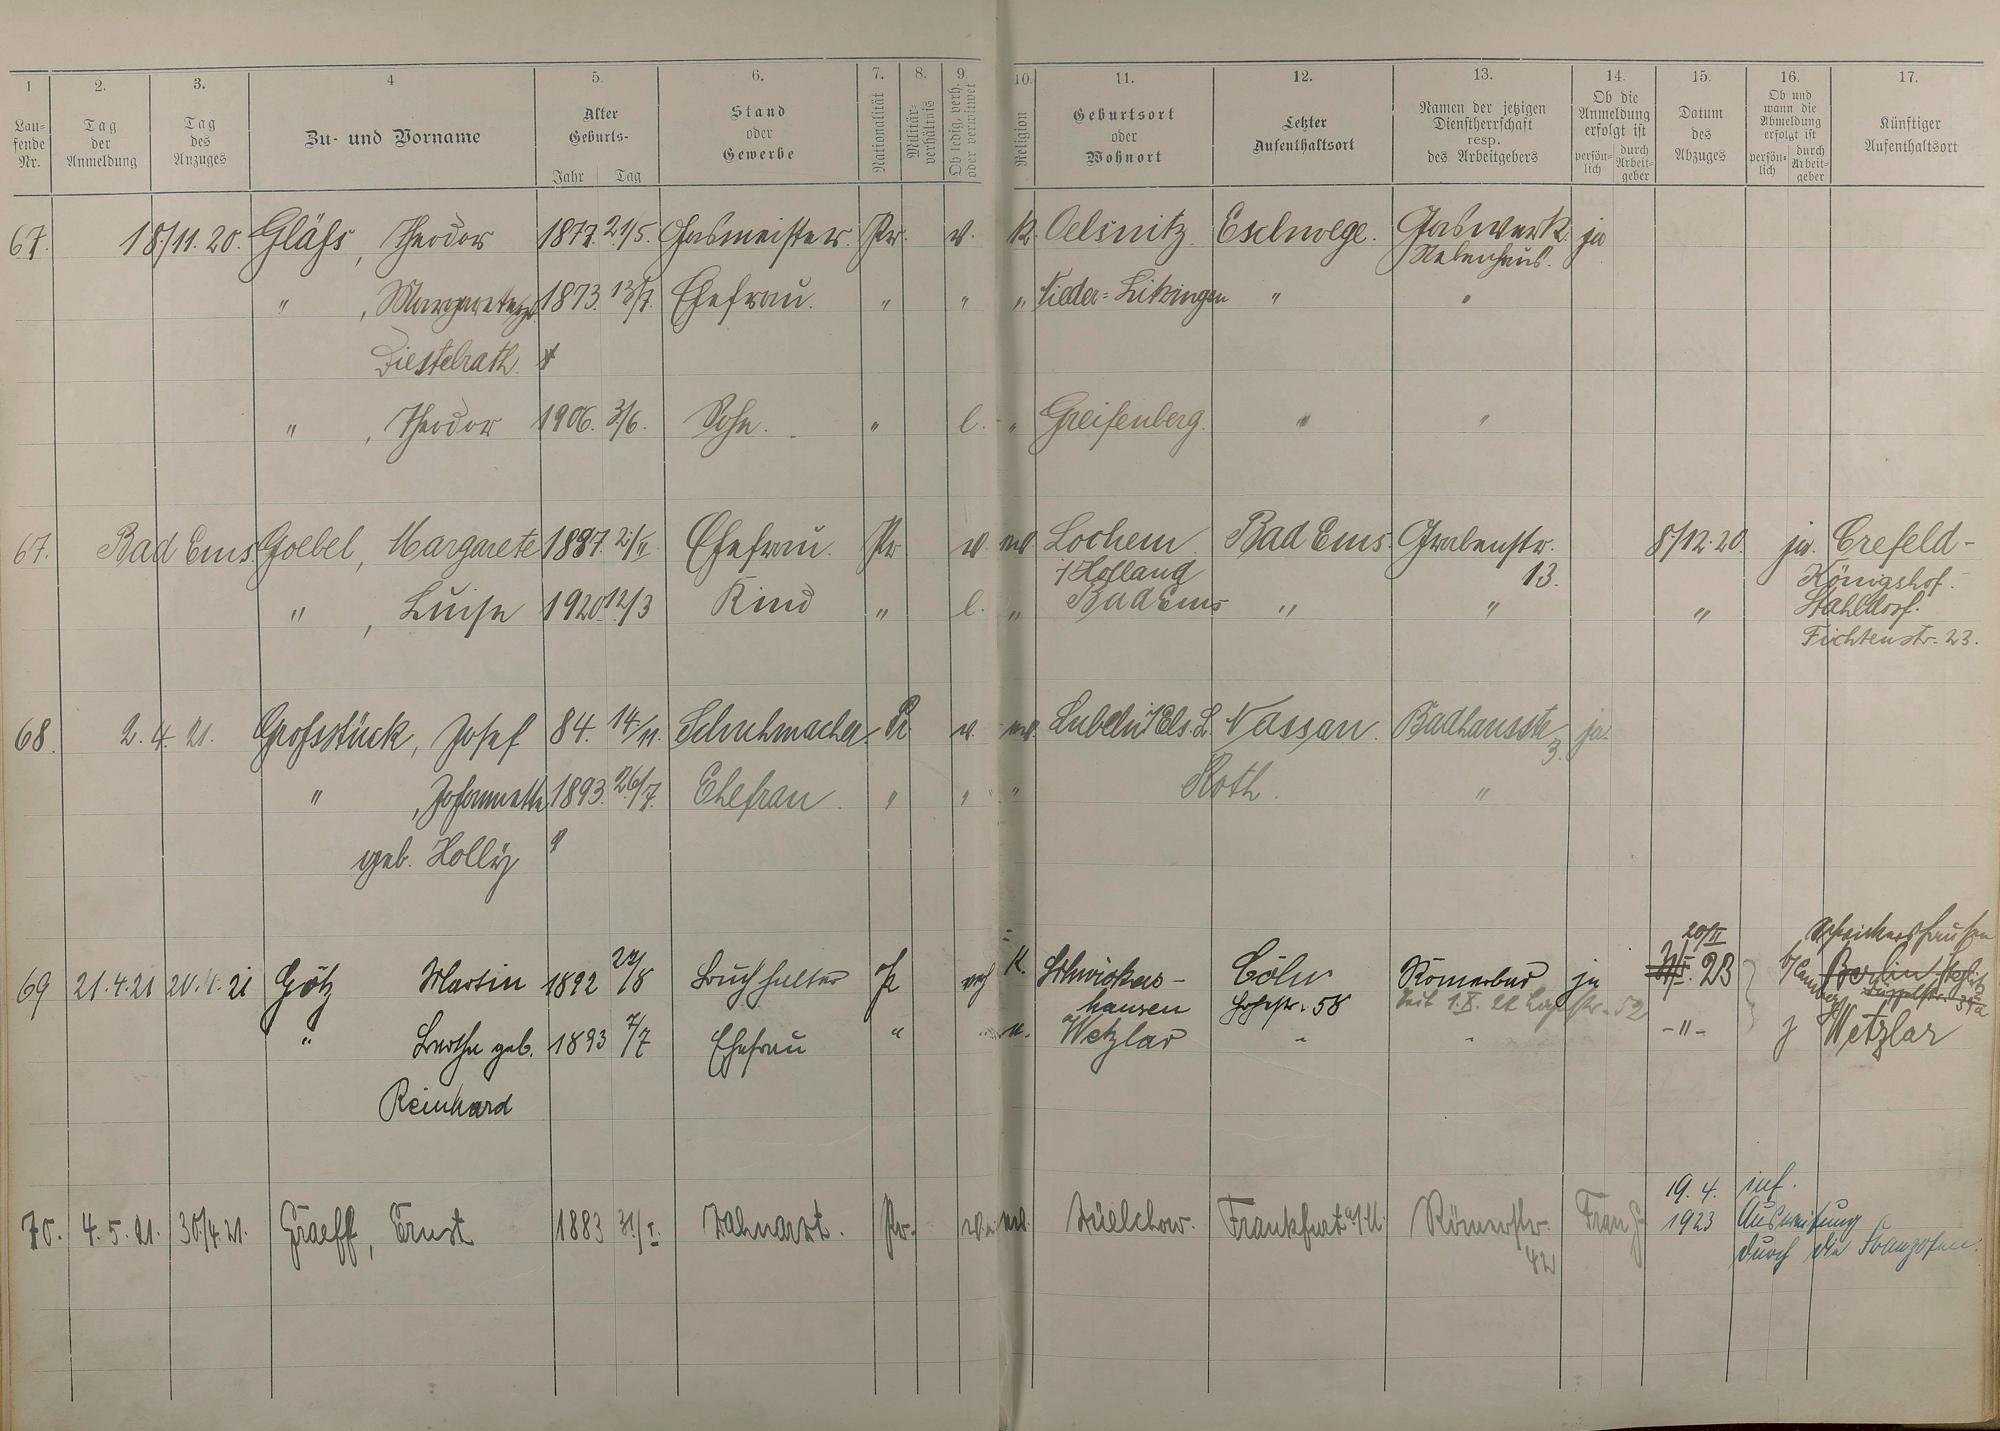 1 2. 3. 4 5. 6. 7. 8. 9. 10. 11. 12. 13. 14. 15. 16. 17.
Lau-
fende
Nr.
Tag
der
Anmeldung
Tag
des
Anzuges
Zu- und Vorname
Alter
Geburts-
Jahr Tag
Stand
oder
Gewerbe
Nationalität
Militär-
verhältnis
Ob ledig, verh.
oder verwitwet
Religion
Geburtsort
oder
Wohnort
Letzter
Aufenthaltsort
Namen der jetzigen
Dienstherrschaft
resp.
des Arbeitgebers
Ob die
Anmeldung
erfolgt ist
persön-
lich
durch
Arbeit-
geber
Datum
des
Abzuges
Ob und
wann die
Abmeldung
erfolgt ist
persön-
lich
durch
Arbeit-
geber
Künftiger
Aufenthaltsort
67. 18/11. 20. Gläfs, Theodor 1877. 21/5. Gasmeister. Pr. v. K. Oelsnitz Eschwege. Gaswerk ja
Nebenhaus.
" , Margarete 1873. 13/7. Ehefrau. " " " "  "
Diestelrath.
" , Theodor 1906. 3/6. Sohn. " l. " Greifenberg. " "
67. Bad Ems. Goebel, Margarete 1887. 2/II Ehefrau. Pr v. ev Lochem Bad Ems. Grabenstr. 8/12. 20. ja. Crefeld-
i/Holland 13. Königshof.
" , Luise 1920 12/3 Kind " l. " Bad Ems " " " Stahldorf.
Fichtenstr. 23.
68. 2. 4. 21. Grofsstück, Josef 84. 14/11. Schuhmacher Pr. v. ev. i/Els. L. Nassau. Badhausstr. ja
3.
" , Johannette 1893. 26/7. Ehefrau. " " " Roth. "
geb. Holly
20/II
69 21.4.21 20.4.21 Götz Martin 1892 22/8 Buchhalter Pr K. Schwickers- Cöln Römerbad ja 23 Berlin
hausen Hohestr. 58 seit 1.X. 22 Lahnstr. 52
" Bertha geb. 1893 7/7 Ehefrau " ". Wetzlar " " -"- j Wetzlar
Reinhard
19. 4. inf.
70. 4. 5. 21. 30/4.21. Graeff, Ernst 1883 31/I. Zahnarzt. Pr. v. ev. Frankfurt a/M. Römerstr. 1923 Ausweisung
42 durch die Franzosen.